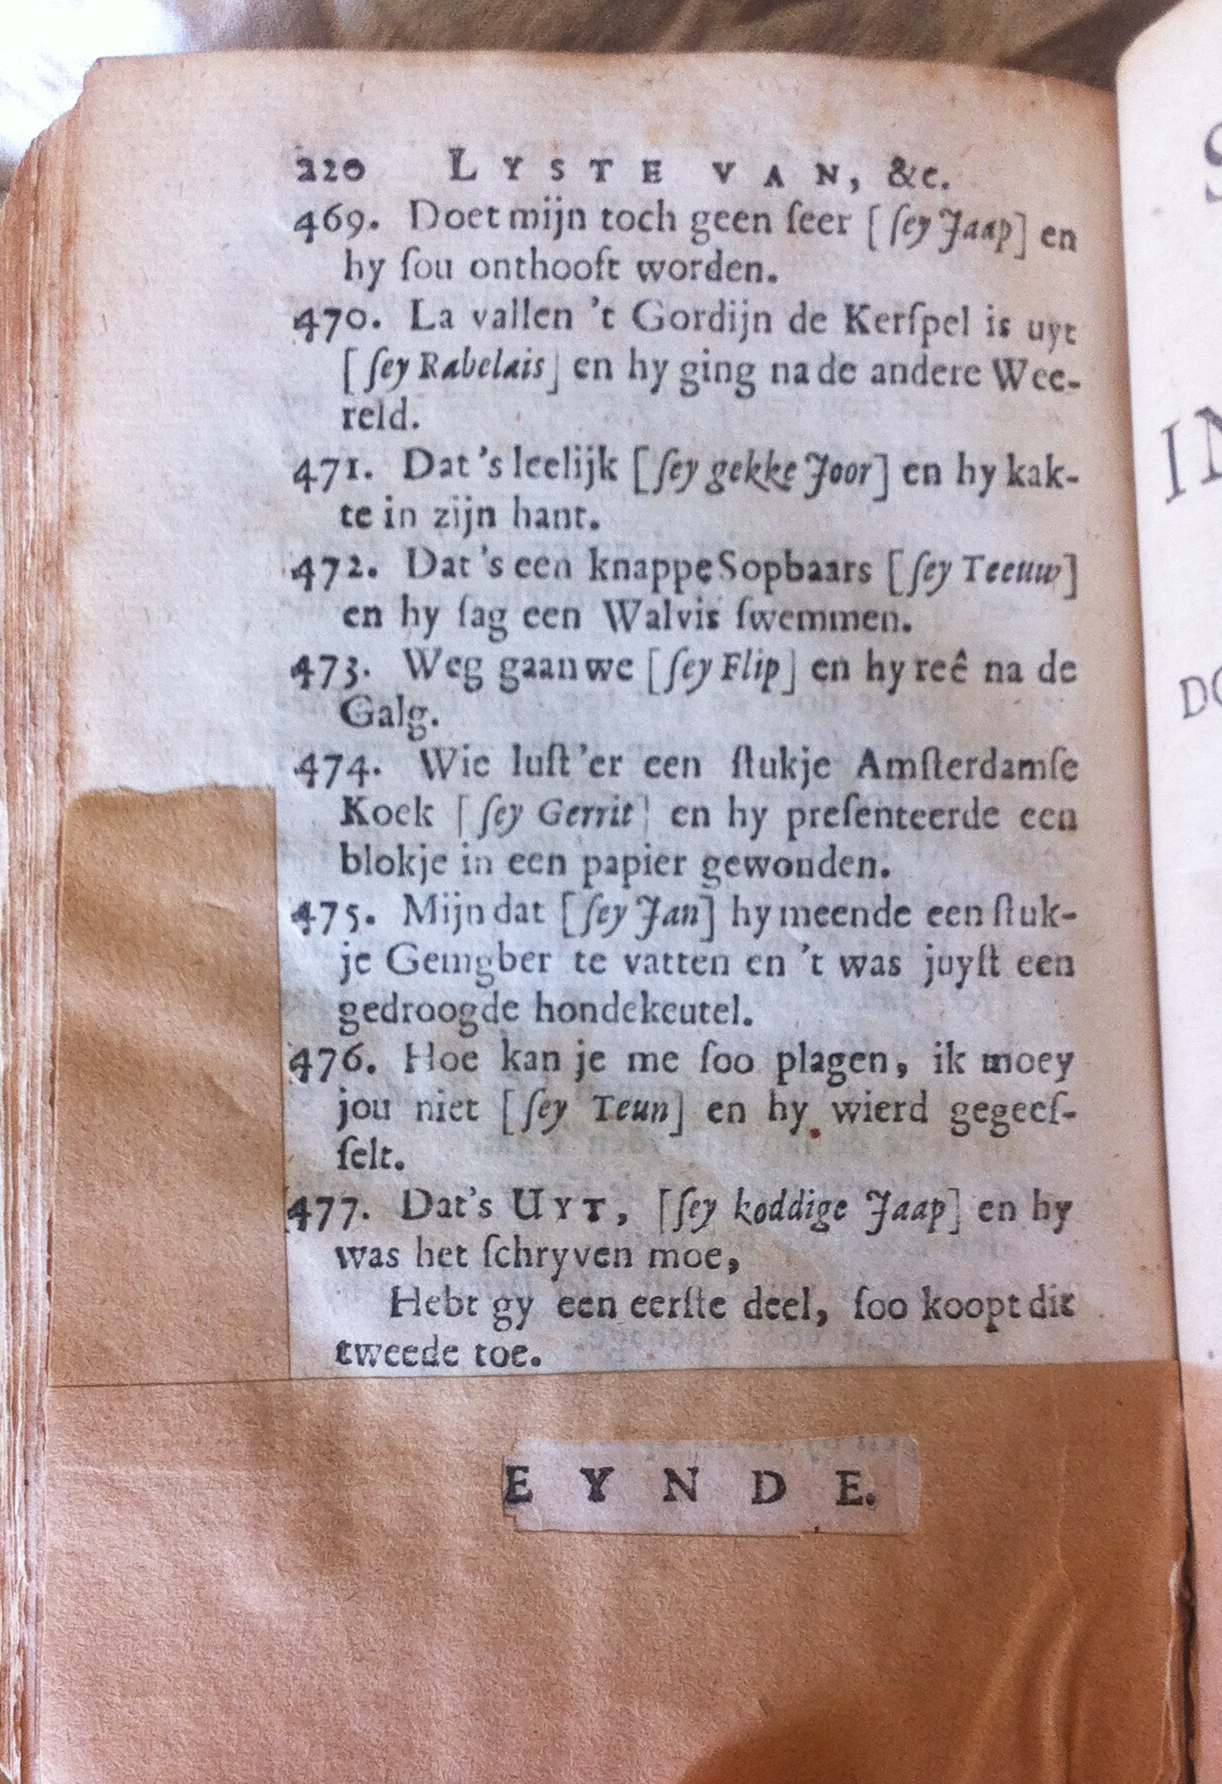 220 LYSTE VAN, &c.
469. Doet mijn toch geen ſeer [ſey Jaap] en
hy ſou onthooft worden.
470. La vallen 't Gordijn de Kerſpel is uyt
[ſey Rabelais] en hy ging na de andere Wee-
reld.
471. Dat 's leelijk [ſey gekke Joor] en hy kak-
te in zijn hant.
472. Dat 's een knappe Sopbaars [ſey Teeuw]
en hy ſag een Walvis ſwemmen.
473. Weg gaan we [ſey Flip] en hy reê na de
Galg.
474. Wie luſt 'er een ſtukje Amſterdamſe
Koek [ſey Gerrit] en hy preſenteerde een
blokje in een papier gewouden.
475. Mijn dat [ſey Jan] hy meende een ſtuk-
je Gemgber te vatten en 't was juyſt een
gedroogde hondekeutel.
476. Hoe kan je me ſoo plagen, ik moey
jou niet [ſey Teun] en hy wierd gegeeſ-
ſelt.
477. Dat's UYT, [ſey koddige Jaap] en hy
was het ſchryven moe,
Hebt gy een eerſte deel, ſoo koopt dit
tweede toe.
EYNDE.
S
IN
DO